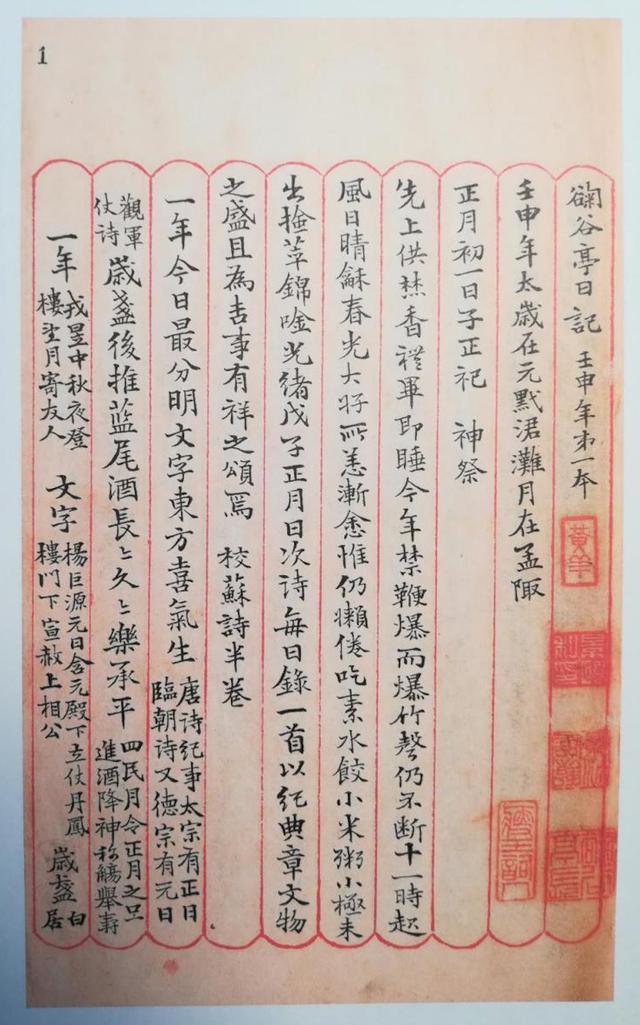 谷亭日記 壬申年第一本
壬申年太歲在元默涒灘月在孟陬
正月初一日子正祀 神祭
先上供焚香禮畢即睡今年禁鞭爆而爆竹聲仍不斷十一時起
風日晴龢春光大好所恙漸愈惟仍懶倦吃素水餃小米粥小極未
出撿萃錦唫光緒戊子正月日次詩每日錄一首以紀典章文物
之盛且為吉事有祥之頌焉 校蘇詩半卷
一年今日最分明文字東方喜氣生 唐诗纪事太宗有正日臨朝诗又德宗有元日
觀軍仗诗 歲盞後推蓝尾酒長〻久〻樂承平 四民月令正月之旦進酒降神称觴舉壽
一年 戎昱中秋夜登樓望月寄友人 文字 楊巨源元日含元殿下立仗丹鳳樓門下宣赦上相公 歲盞 白居
1